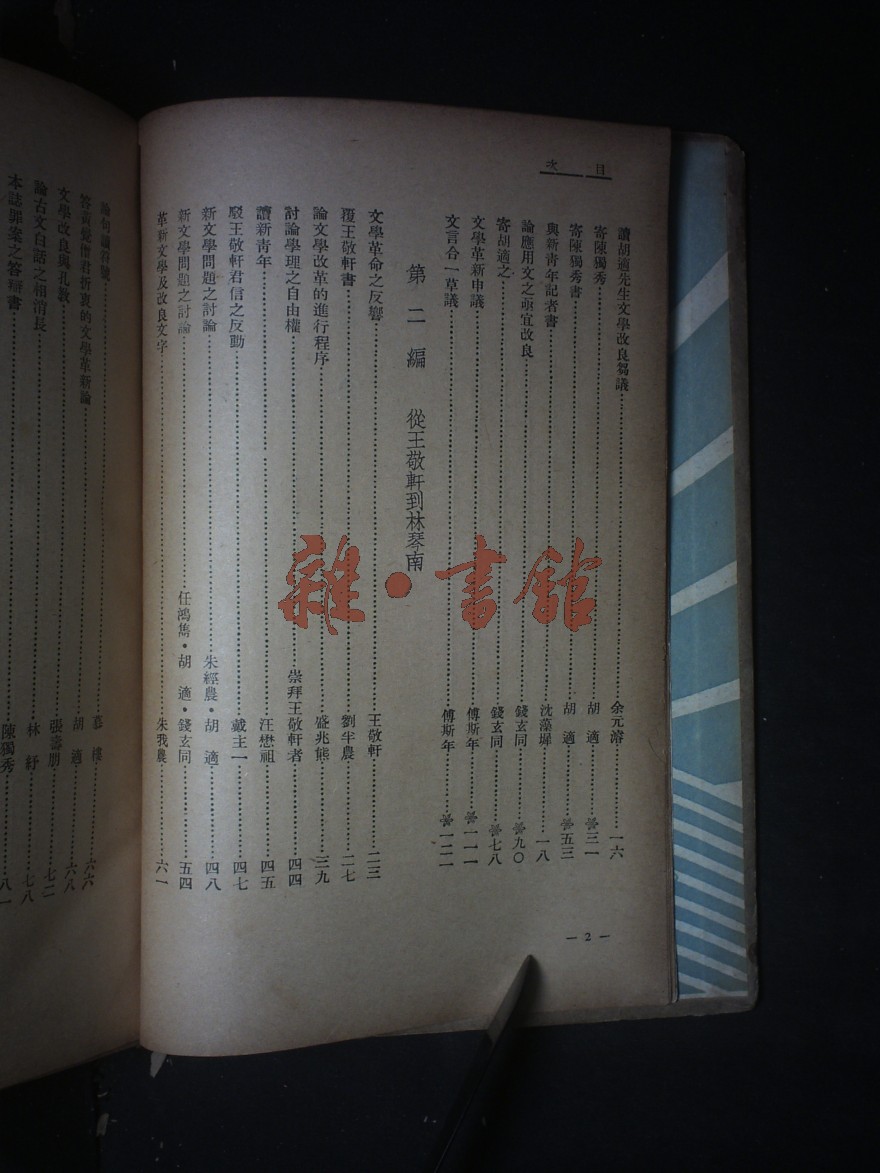 目次
讀胡適先生文學改良芻議 余元濬 一六
寄陳獨秀 胡適 ※三一
寄陳獨秀書 胡適 ※五三
與新青年記者書 沈藻墀 一八
論應用文之亟宜改良 錢玄同 ※九〇
寄胡適之 錢玄同 ※七八
文學革新申議 傅斯年 ※一一一
文言合一草議 傅斯年 ※一二一
第二編 從王敬軒到林琴南
文學革命之反響 王敬軒 二三
覆王敬軒書 劉半農 二七
論文學改革的進行程序 盛兆熊 三九
討論學理之自由權 崇拜王敬軒者 四四
讀新青年 汪懋祖 四五
駁王敬軒君信之反動 戴主一 四七
新文學問題之討論 朱經農・胡適 四八
新文學問題之討論 任鴻雋・胡適・錢玄同 五四
革新文學及改良文字 朱我農 六一
— 2 —
論句讀符號 慕樓 六六
答黃覺僧君折衷的文學革新論 胡適 六八
文學改良與孔教 張壽朋 七二
論古文白話之相消長 林紓 七八
本誌罪案之答辯書 陳獨秀 八一
雜・書館